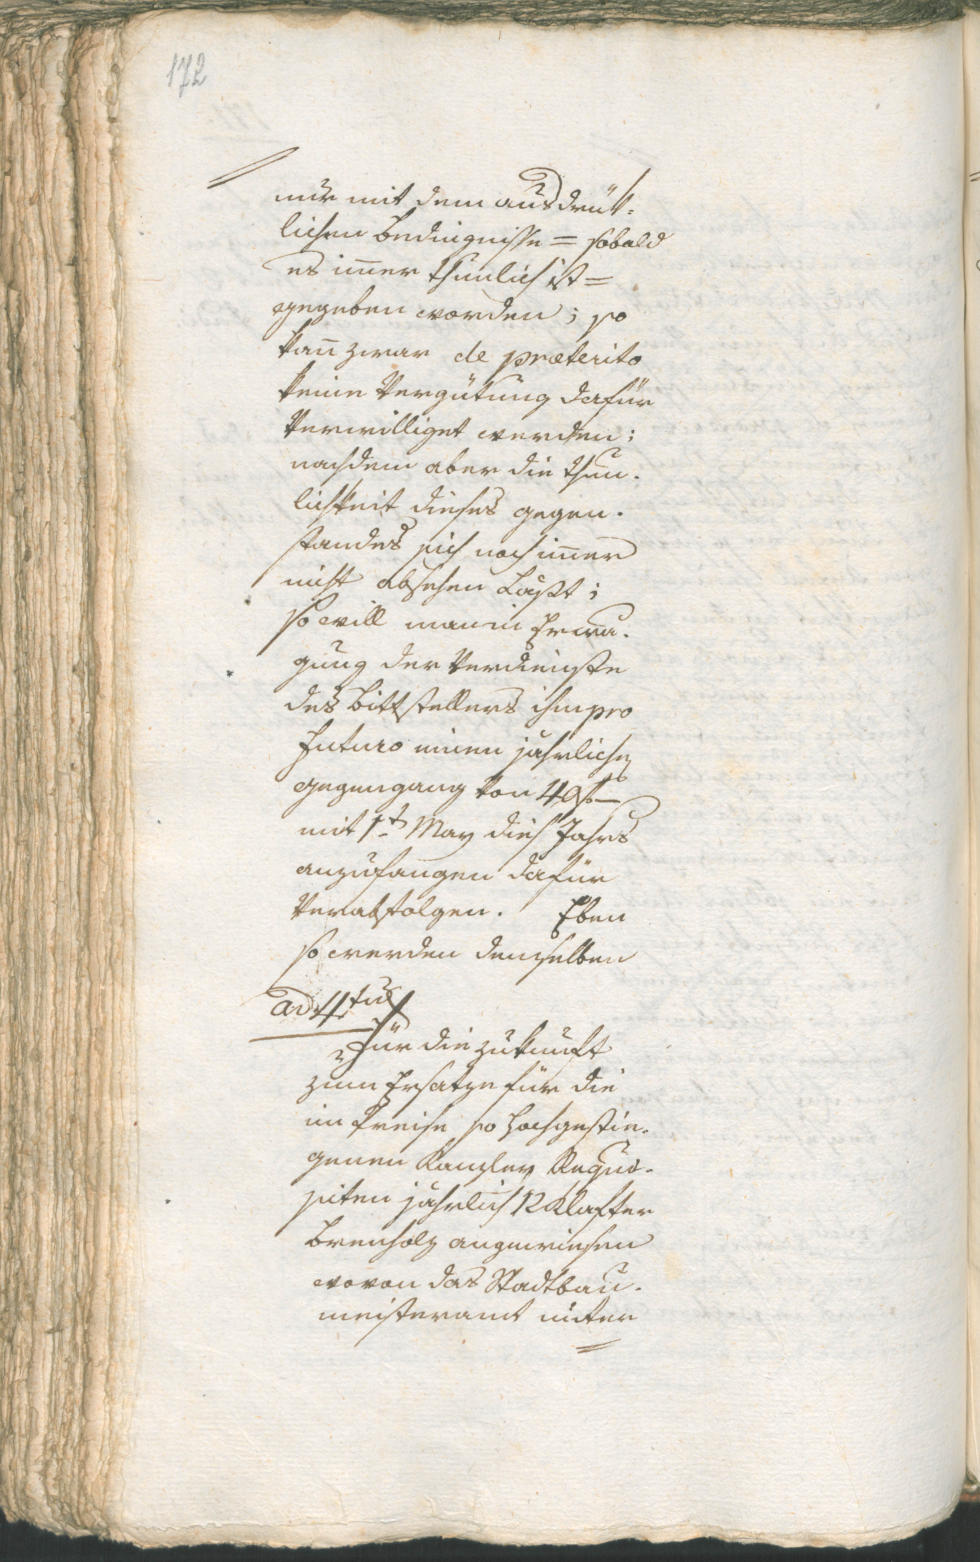 172
nur mit dem ausdrük-
lichen Bedingnisse = sobald
es im̅er thunlich ist =
gegeben worden; so
kan̅ zwar de præterito
keine Vergütung dafür
Verwilliget werden;
nachdem aber die Thun-
lichkeit dieses Gegen-
standes sich noch im̅er
nicht absehen Laßt;
so will man in Erwä-
gung der Verdienste
des Bittstellers ihm pro
Futuro einen jährlichen
gegengang von 40 f –
mit 1t May dies Jahrs
anzufangen dafür
Verabfolgen. Eben
so werden demselben
ad 4tum
Für die Zukunft
zum Ersatze für die
im Preise so hochgestie-
genen Kanzley Requi-
siten jährlich 12 Klafter
Brenholz angewiesen
wovon das Stadtbau-
meisteramt unter